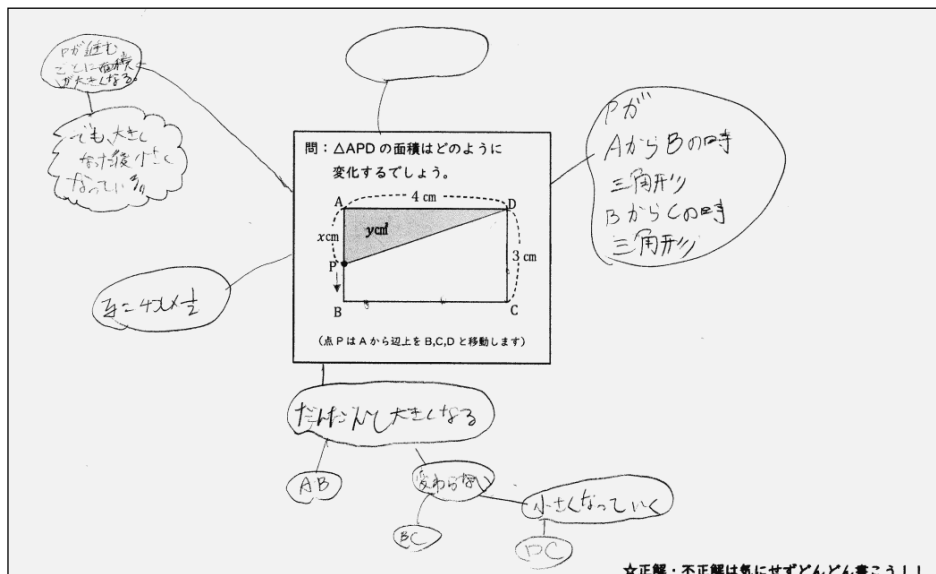 Pが進む
ごとに面積
が大きくなる。
でも、大きく
なった後小さく
なっている。
y=4x×1/2
問：△APD の面積はどのように
変化するでしょう。
A
4 cm
D
xcm
ycm²
P
3 cm
B
C
（点 P は A から辺上を B,C,D と移動します）
Pが
AからBの時
三角形
BからCの時
三角形
だんだんと大きくなる
AB
変わらない
BC
小さくなっていく
DC
☆正解・不正解は気にせずどんどん書こう！！